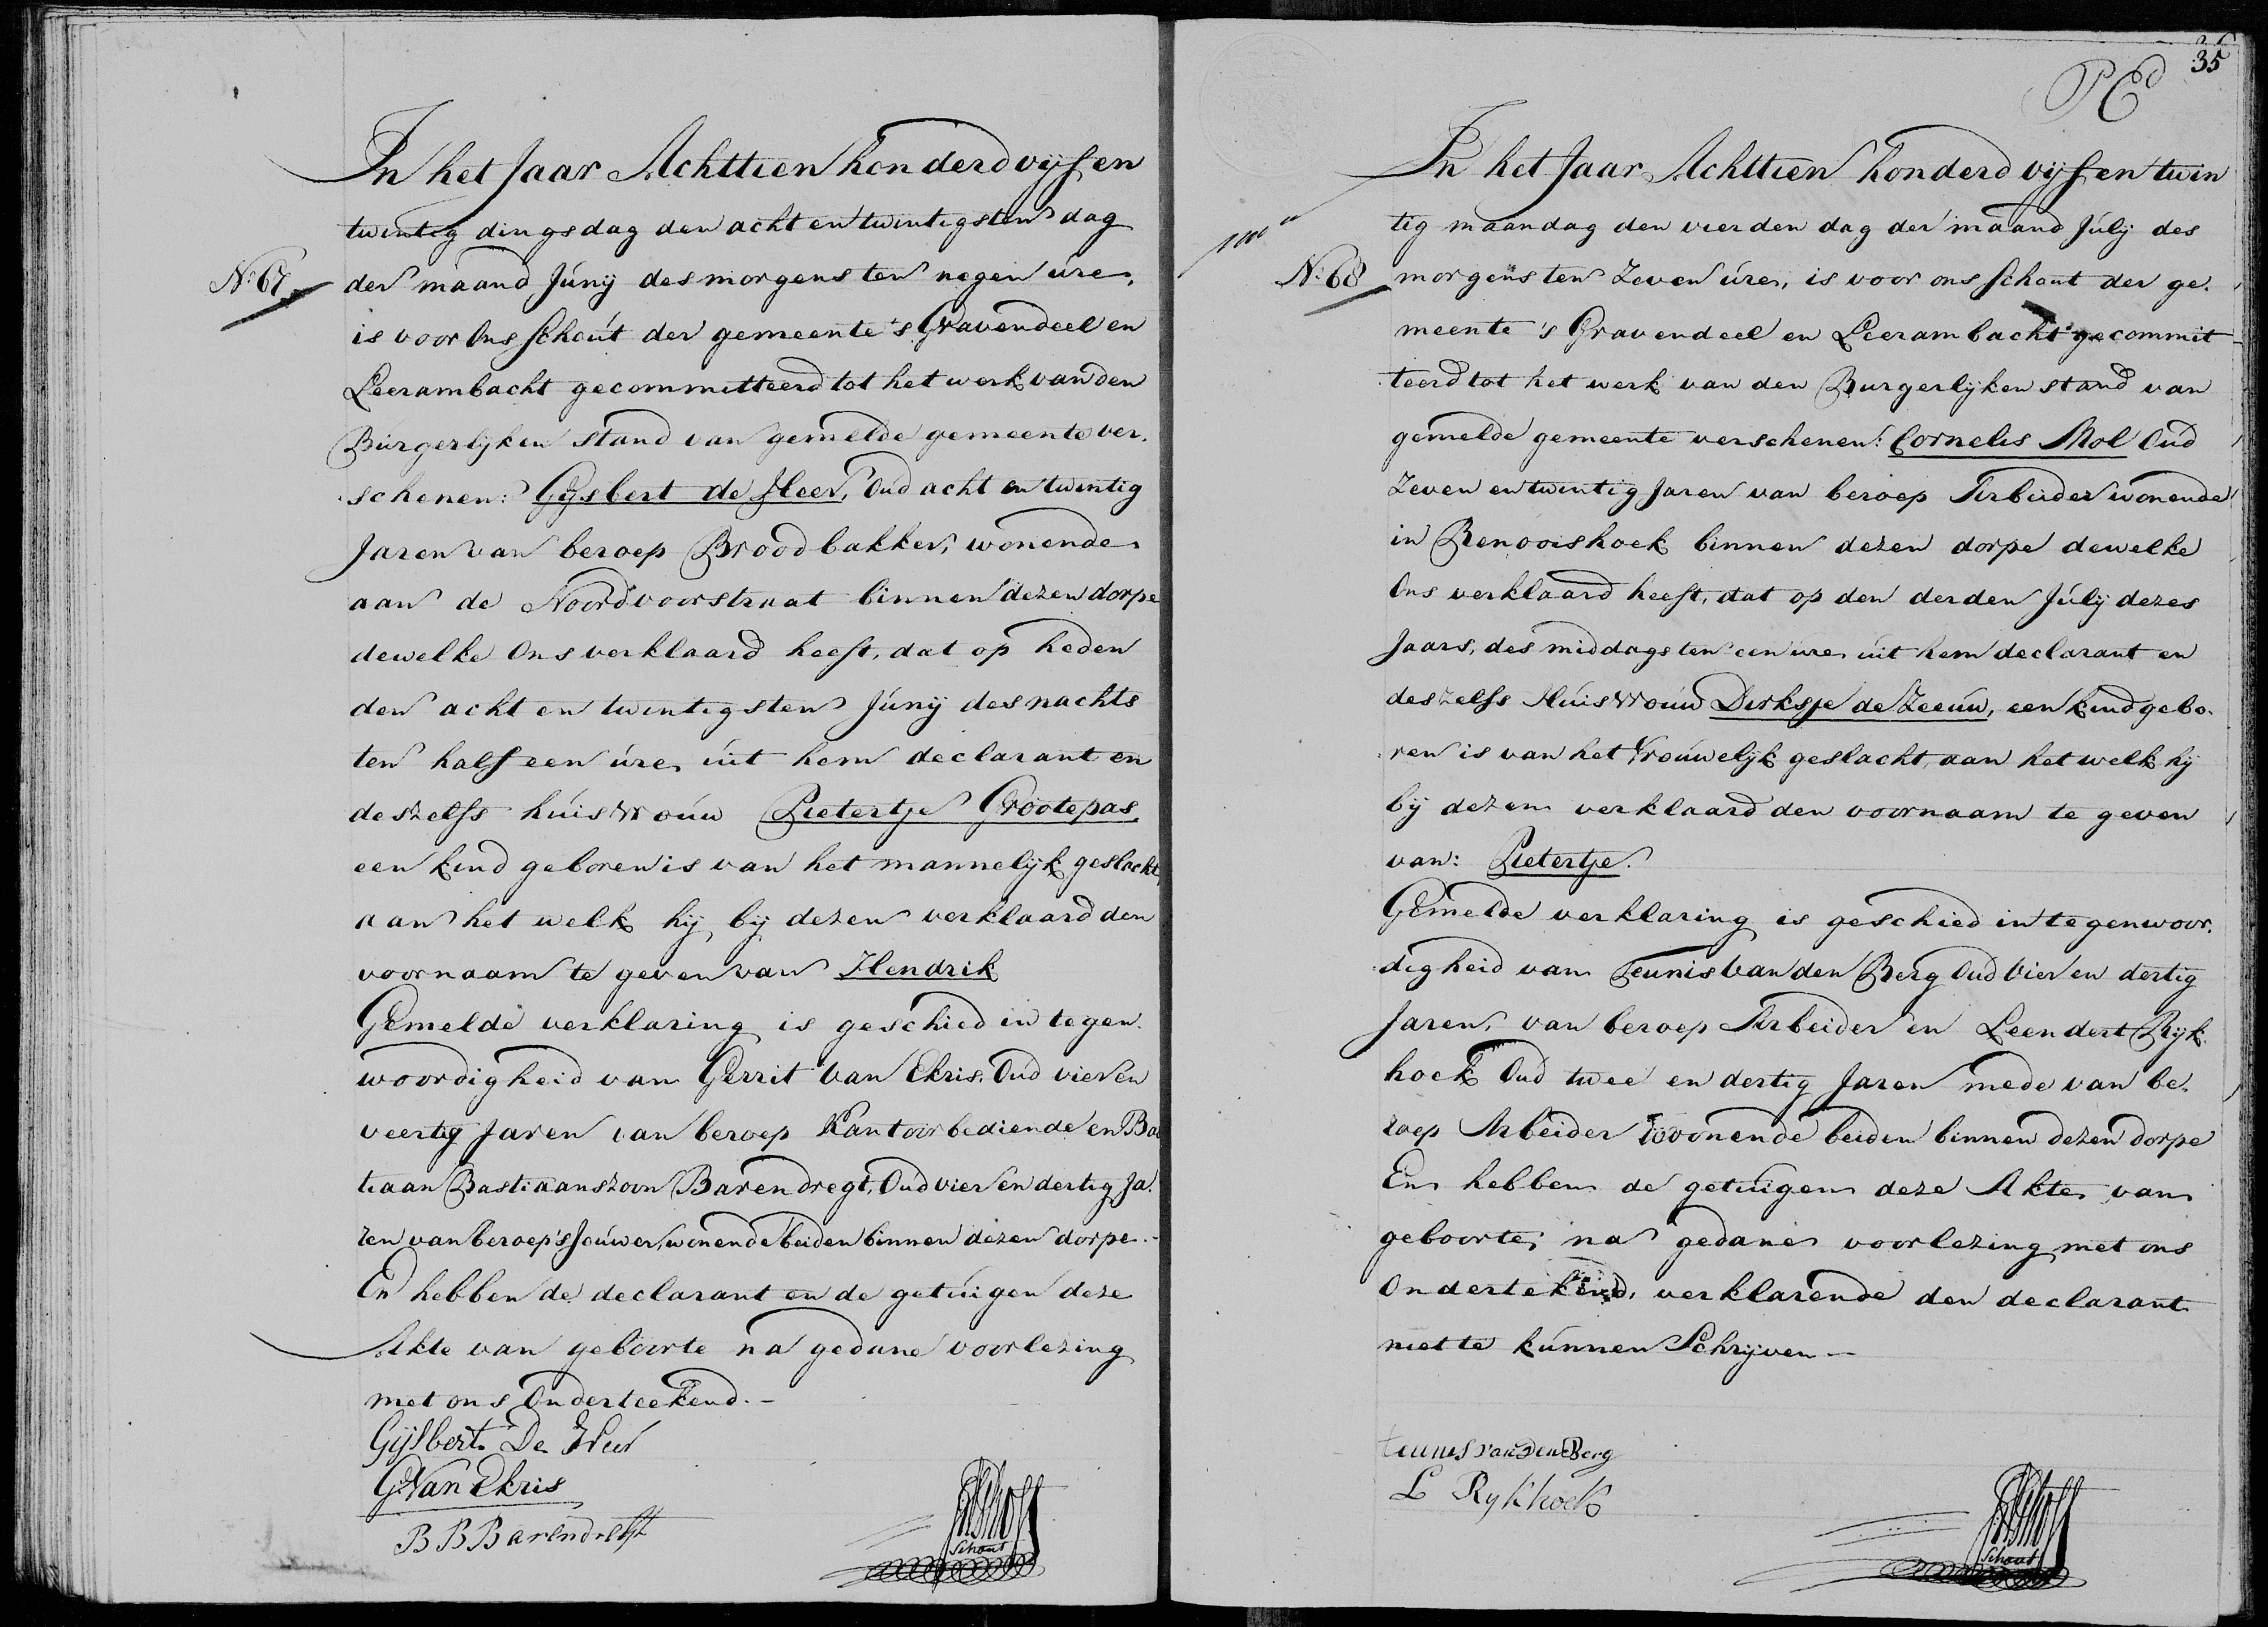 In het Jaar Achttien honderd vijf en
twintig dingsdag den acht en twintigsten dag
N: 67 der maand Júnij des morgens ten negen úre,
is voor Ons Schoút der gemeente 's Gravendeel en
Leerambacht gecommitteerd tot het werk van den
Búrgerlijken stand van gemelde gemeente ver.
schenen: Gijsbert de Heer, Oud acht en twintig
Jaren van beroep Broodbakker, wonende
aan de Noordvoorstraat binnen dezen dorpe
dewelke Ons verklaard heeft, dat op heden
den acht en twintigsten Júnij des nachts
ten half een úre, úit hem declarant en
deszelfs húisvroúw Pietertje Grootepas,
een kind geboren is van het mannelijk geslacht,
aan het welk hij bij dezen verklaard den
voornaam te geven van Hendrik
Gemelde verklaring is geschied in tegen.
woordigheid van Gerrit van Ekris, Oud vier en
veertig Jaren van beroep Kantoorbediende en Bas
tiaan Bastiaanszoon Barendregt, Oud vier en dertig Ja.
ren van beroep Sjouwer, wonende beiden binnen dezen dorpe.-
En hebben de declarant en de getúigen deze
Akte van geboorte na gedane voorlezing
met ons Onderteekend.-
Gijsbert De Heer
G. Van Ekris
B B Barendregt
Schout
35
In het Jaar Achttien honderd vijf en twin
tig maandag den vierden dag der maand Júlij des
N: 68 morgens ten Zeven úre, is voor ons Schout der ge.
meente 's Gravendeel en Leerambacht gecommit
teerd tot het werk van den Burgerlijken stand van
gemelde gemeente verschenen: Cornelis Mol Oud
Zeven en twintig Jaren van beroep Arbeider wonende
in Renooishoek binnen dezen dorpe dewelke
Ons verklaard heeft, dat op den derden Júlij dezes
Jaars, des middags ten een úre úit hem declarant en
deszelfs Húisvroúw Dirksje de Zeeúw, een kind gebo.
ren is van het Vroúwelijk geslacht, aan het welk hij
bij dezen verklaard den voornaam te geven
van: Pietertje.
Gemelde verklaring is geschied in tegenwoor.
digheid van Teunis van den Berg Oud Vier en dertig
Jaren, van beroep Arbeider en Leendert Rijk.
hoek Oud twee en dertig Jaren mede van be.
roep Arbeider wonende beiden binnen dezen dorpe
En hebben de getúigen deze Akte van
geboorte, na gedane voorlezing met ons
Ondertekend, verklarende den declarant
niet te kúnnen Schrijven -
teunes van den Berg
L Rykhoek
Schout